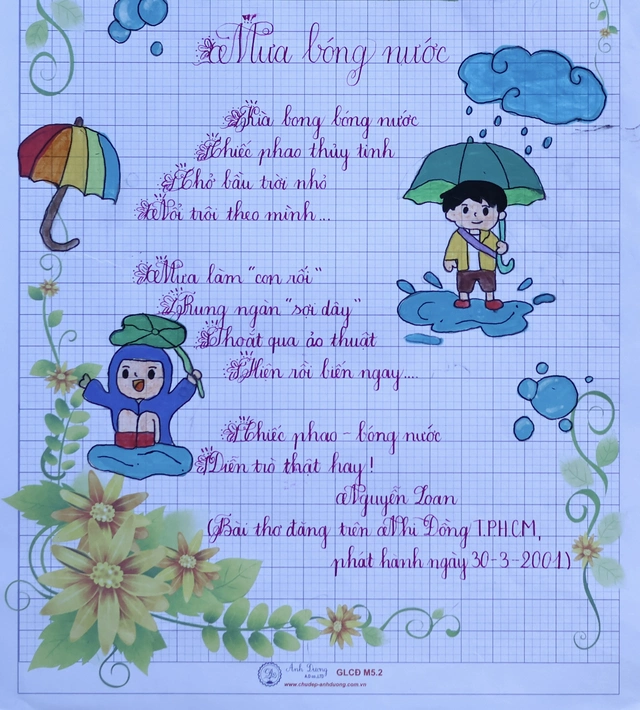 Mưa bóng nước
Kìa bong bóng nước
Chiếc phao thủy tinh
Chở bầu trời nhỏ
Nổi trôi theo mình...
Mưa làm "con rối"
Rung ngàn "sợi dây"
Thoát qua ảo thuật
Hiện rồi biến ngay....
Chiếc phao - bóng nước
Diễn trò thật hay!
Nguyễn Loan
(Bài thơ đăng trên Nhi Đồng T.P.H.C.M,
phát hành ngày 30-3-2001)
Ánh Dương
GLCĐ M5.2
www.chudep-anhduong.com.vn